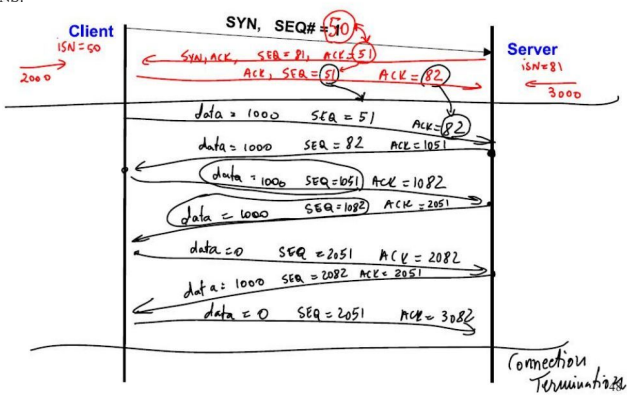 NS.
SYN, SEQ# = 50
Client
ISN=50
SYN, ACK, SEQ = 81, ACK = 51
Server
iSN=81
2000
ACK, SEQ = 51 ACK = 82
3000
data = 1000 SEQ = 51 ACK = 82
data = 1000 SEQ = 82 ACK = 1051
data = 1000 SEQ=1051 ACK = 1082
data = 1000 SEQ=1082 ACK = 2051
data=0 SEQ = 2051 ACK = 2082
data = 1000 SEQ = 2082 ACK = 2051
data = 0 SEQ = 2051 ACK = 3082
Connection
Termination